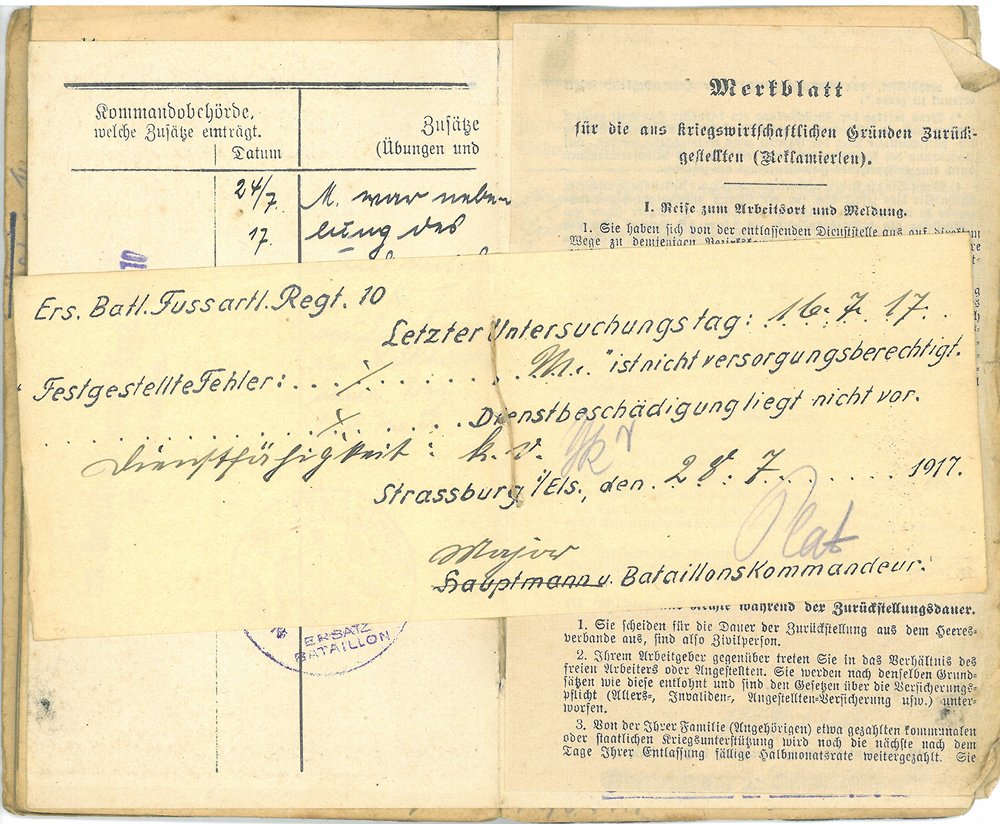 Kommandobehörde,
welche Zusätze einträgt.
Datum
Zusätze
(Übungen und
24/7.
17.
M. war neben-
lung des
10
Merkblatt
für die aus kriegswirtschaftlichen Gründen Zurück-
gestellten (Reklamierten).
I. Reise zum Arbeitsort und Meldung.
1. Sie haben sich von der entlassenden Dienststelle aus auf direktem
Wege zu demjenigen
Ers. Batl. Fussartl. Regt. 10
Letzter Untersuchungstag: 16. 7. 17.
Festgestellte Fehler: . . . . . . . . . . "M." ist nicht versorgungsberechtigt.
. . . . . . . . . . . . . . . . Dienstbeschädigung liegt nicht vor.
Dienstfähigkeit: k. v.
Strassburg i/Els., den 28. 7. . . . . . . . 1917.
Major
Hauptmann u. Bataillonskommandeur.
ERSATZ
BATAILLON
während der Zurückstellungsdauer.
1. Sie scheiden für die Dauer der Zurückstellung aus dem Heeres-
verbande aus, sind also Zivilperson.
2. Ihrem Arbeitgeber gegenüber treten Sie in das Verhältnis des
freien Arbeiters oder Angestellten. Sie werden nach denselben Grund-
sätzen wie diese entlohnt und sind den Gesetzen über die Versicherungs-
pflicht (Alters-, Invaliden-, Angestellten-Versicherung usw.) unter-
worfen.
3. Von der Ihrer Familie (Angehörigen) etwa gezahlten kommunalen
oder staatlichen Kriegsunterstützung wird noch die nächste nach dem
Tage Ihrer Entlassung fällige Halbmonatsrate weitergezahlt. Sie